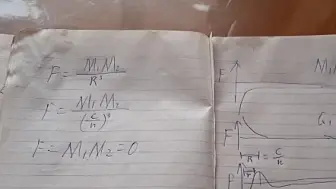 F = M₁M₂ / R²
F = M₁M₂ / (C/n)²
F = M₁M₂ = 0
F
F
|r| = C/n